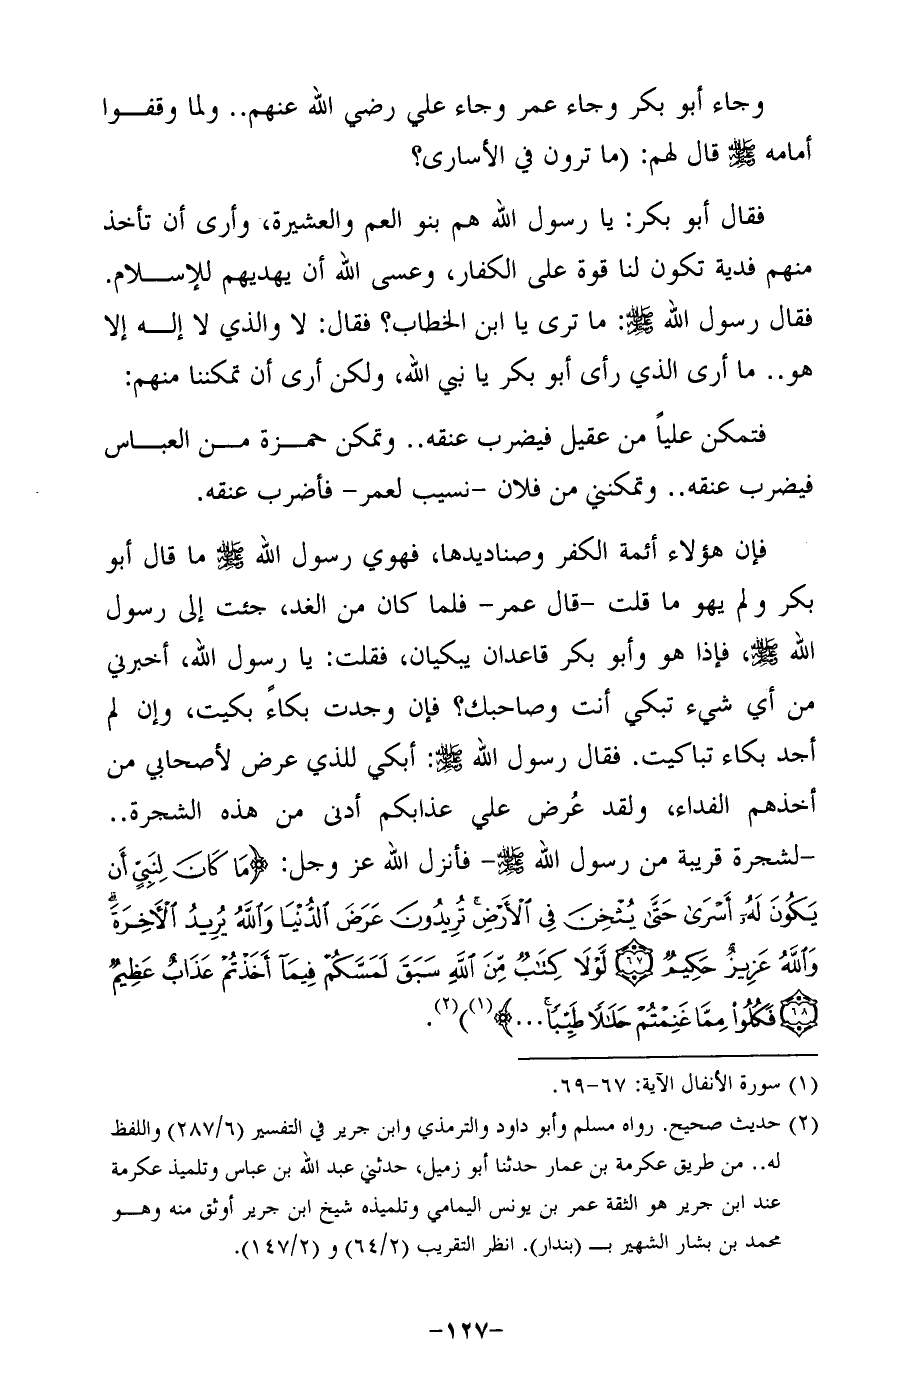 وجاء أبو بكر وجاء عمر وجاء علي رضي الله عنهم.. ولما وقفـــوا
أمامه ﷺ قال لهم: (ما ترون في الأسارى؟
فقال أبو بكر: يا رسول الله هم بنو العم والعشيرة، وأرى أن تأخذ
منهم فدية تكون لنا قوة على الكفار، وعسى الله أن يهديهم للإســـلام.
فقال رسول الله ﷺ: ما ترى يا ابن الخطاب؟ فقال: لا والذي لا إلـــه إلا
هو.. ما أرى الذي رأى أبو بكر يا نبي الله، ولكن أرى أن تمكننا منهم:
فتمكن علياً من عقيل فيضرب عنقه.. وتمكن حمـــزة مـــن العبـــاس
فيضرب عنقه.. وتمكنني من فلان -نسيب لعمر- فأضرب عنقه.
فإن هؤلاء أئمة الكفر وصناديدها، فهوي رسول الله ﷺ ما قال أبو
بكر ولم يهو ما قلت -قال عمر- فلما كان من الغد، جئت إلى رسول
الله ﷺ، فإذا هو وأبو بكر قاعدان يبكيان، فقلت: يا رسول الله، أخبرني
من أي شيء تبكي أنت وصاحبك؟ فإن وجدت بكاءً بكيت، وإن لم
أجد بكاء تباكيت. فقال رسول الله ﷺ: أبكي للذي عرض لأصحابي من
أخذهم الفداء، ولقد عُرض علي عذابكم أدنى من هذه الشجرة..
-لشجرة قريبة من رسول الله ﷺ- فأنزل الله عز وجل: ﴿مَا كَانَ لِنَبِيٍّ أَن
يَكُونَ لَهُۥٓ أَسْرَىٰ حَتَّىٰ يُثْخِنَ فِي ٱلْأَرْضِ ۚ تُرِيدُونَ عَرَضَ ٱلدُّنْيَا وَٱللَّهُ يُرِيدُ ٱلْءَاخِرَةَ ۗ
وَٱللَّهُ عَزِيزٌ حَكِيمٌ ﴿٦٧﴾ لَّوْلَا كِتَٰبٌ مِّنَ ٱللَّهِ سَبَقَ لَمَسَّكُمْ فِيمَآ أَخَذْتُمْ عَذَابٌ عَظِيمٌ
﴿٦٨﴾ فَكُلُوا۟ مِمَّا غَنِمْتُمْ حَلَٰلًا طَيِّبًا ۚ...﴾(١))(٢).
(١) سورة الأنفال الآية: ٦٧-٦٩.
(٢) حديث صحيح. رواه مسلم وأبو داود والترمذي وابن جرير في التفسير (٢٨٧/٦) واللفظ
له.. من طريق عكرمة بن عمار حدثنا أبو زميل، حدثني عبد الله بن عباس وتلميذ عكرمة
عند ابن جرير هو الثقة عمر بن يونس اليمامي وتلميذه شيخ ابن جرير أوثق منه وهـــو
محمد بن بشار الشهير بـــ (بندار). انظر التقريب (٦٤/٢) و (١٤٧/٢).
-١٢٧-